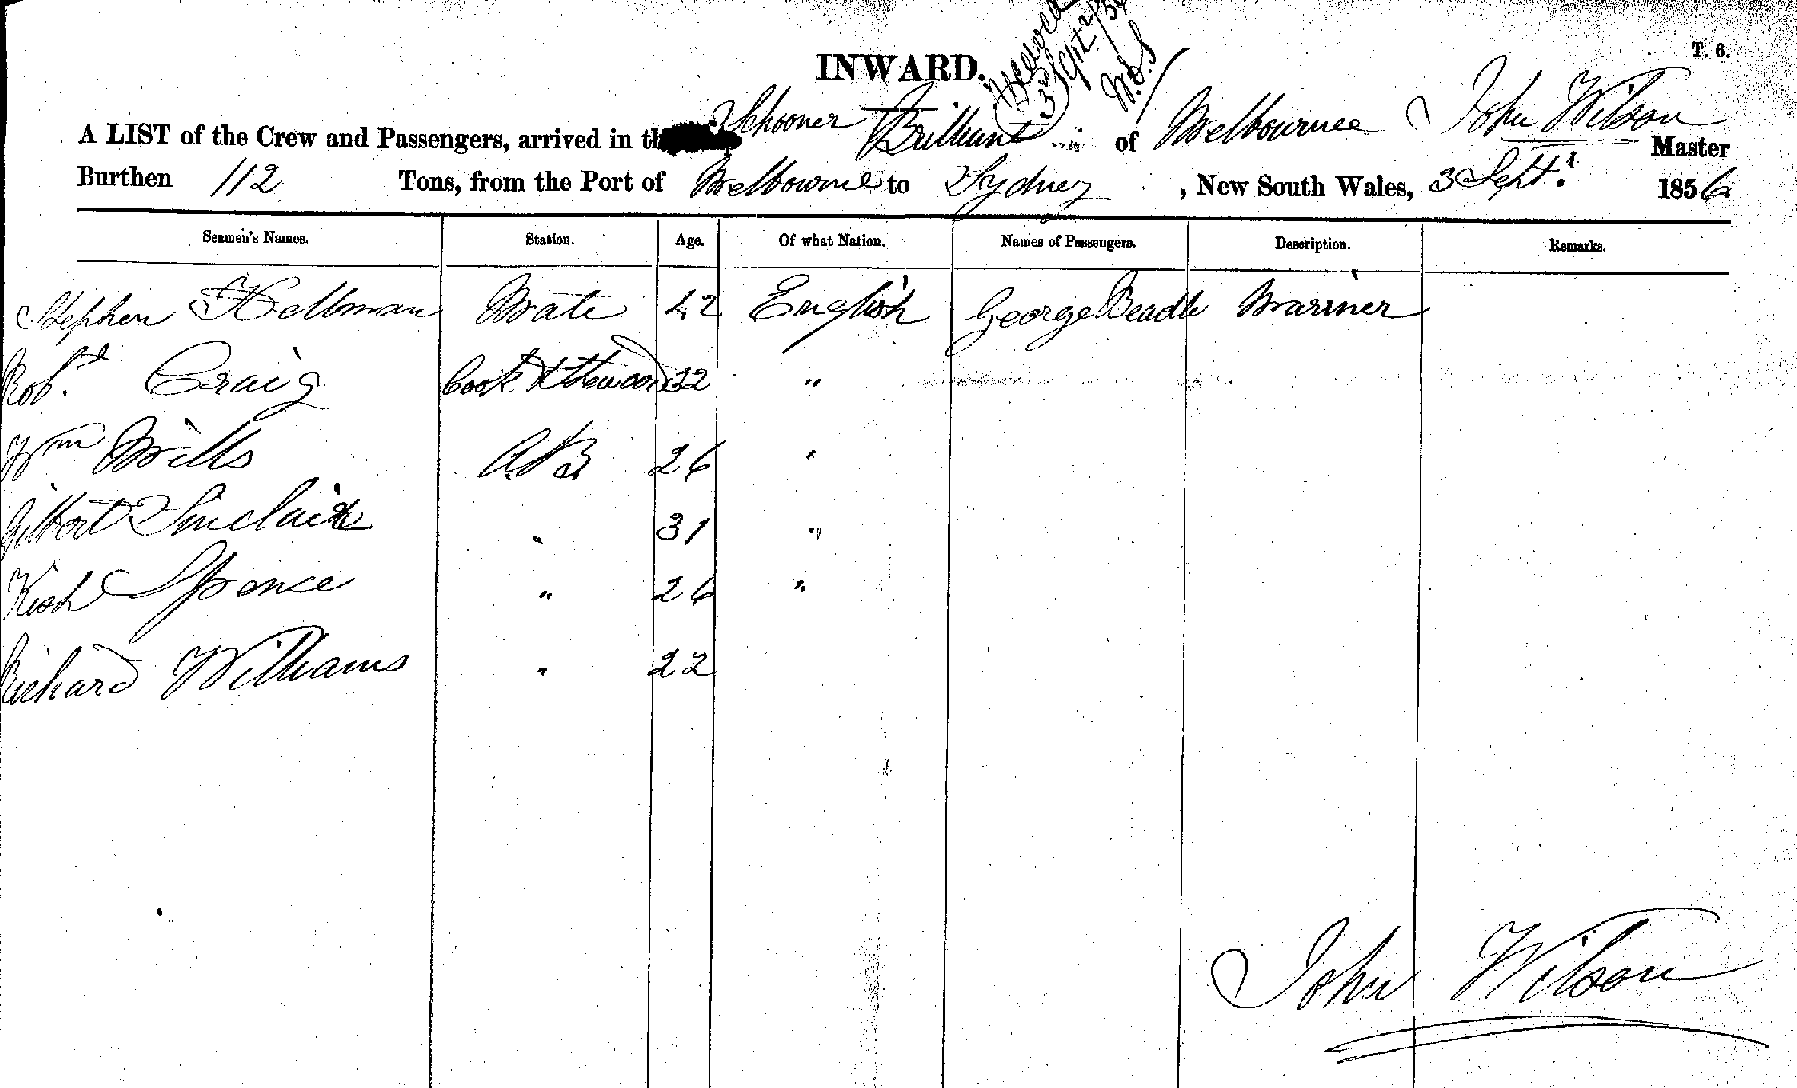 T. 6.
INWARD.
Received
3 Sept 1856
A LIST of the Crew and Passengers, arrived in the Schooner Brilliant of Melbourne John Wilson Master
Burthen 112 Tons, from the Port of Melbourne to Sydney, New South Wales, 3 Septr. 1856
Seamen's Names. Station. Age. Of what Nation. Names of Passengers. Description. Remarks.
Stephen Hollman Mate 42 English George Beadle Mariner
Robt. Craig Cook & Steward 32 "
Wm Mills AB 26 "
Gilbert Sinclair " 31 "
Spence " 26 "
Richard Williams " 22
John Wilson